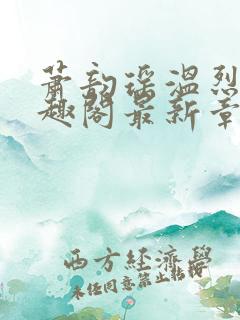 萧韵瑶温烈
趣阁最新章
西方经济学
未经同意禁止转载